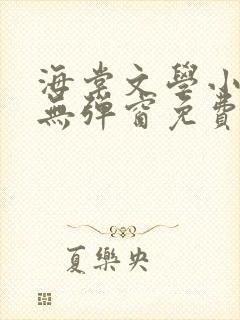 海棠文學小
無彈窗免費
夏樂央